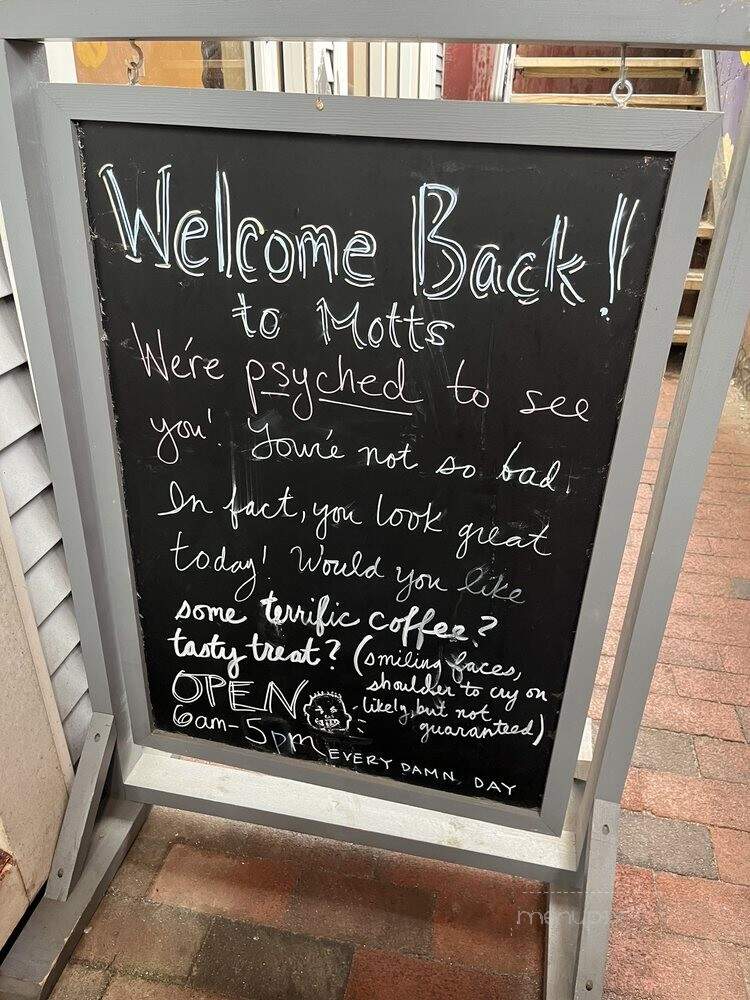 Welcome Back!
to Motts
We're psyched to see
you! You're not so bad.
In fact, you look great
today! Would you like
some terrific coffee?
tasty treat? (smiling faces,
shoulder to cry on
likely, but not
guaranteed)
OPEN
6am-5pm EVERY DAMN DAY